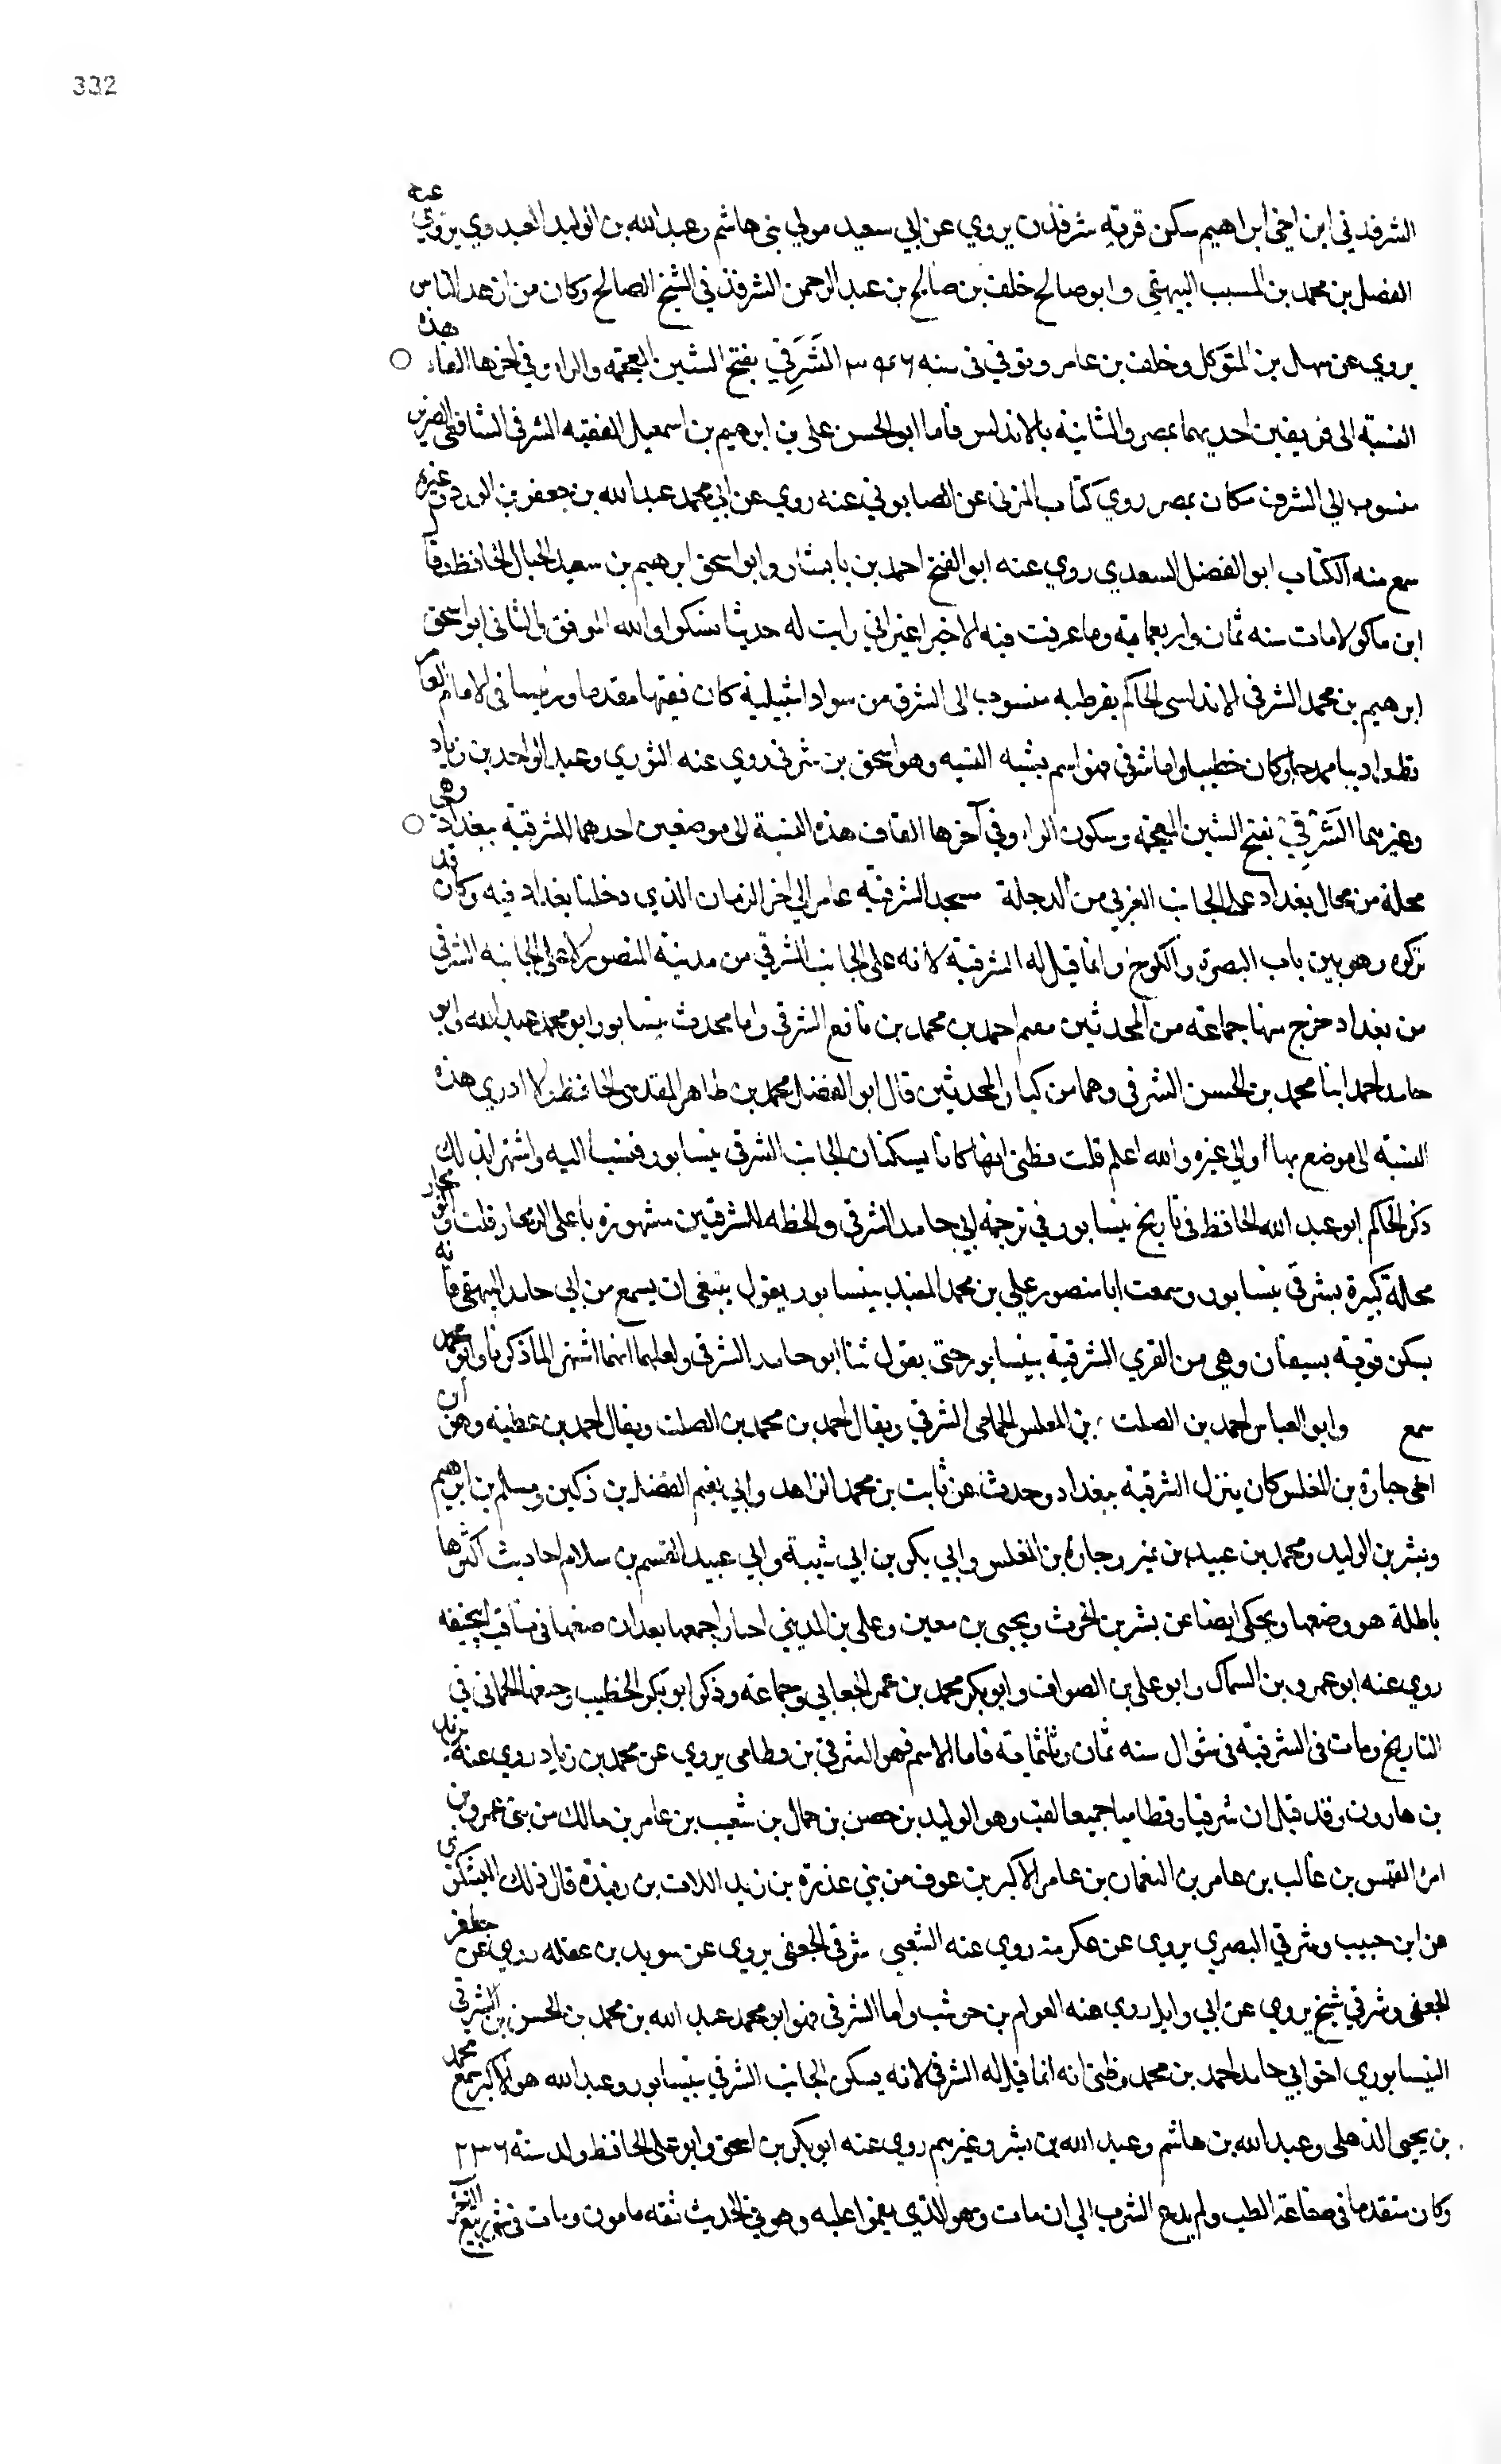 332
الشرفدني ابن اخي ابراهيم سكن قرية شرفدن يروي عن ابي سعيد مولي بني هاشم وعبد الله بن الوليد العبدوي يروي عنه
الفضل بن محمد بن المسيب البيهقي وابو صالح خلف بن صالح بن عبد الرحمن الشرفدني الشيخ الصالح وكان من ازهد الناس
يروي عن سهل بن المتوكل وخلف بن عامر وتوفي في سنه الشَرَفِي بفتح الشين المعجمة والراء وفي اخرها الفاء هذه
النسبة الى قريتين احديهما بمصر والثانية بالاندلس فاما ابو الحسن علي بن ابرهيم بن اسمعيل الفقيه الشرفي الشافعي الضرير
منسوب الي الشرف مكان بمصر روي كتاب المزني عن الصابوني عنه روي عن ابي محمد عبد الله بن جعفر بن الورد وغيره
سمع منه الكتاب ابو الفضل السعدي روي عنه ابو الفتح احمد بن بابشاذ وابو اسحق ابرهيم بن سعيد الحبال الحافظ وقال
ابن ماكولا مات سنه ثمان واربعماية وما عرفت فيه الا خيرا غير اني رايت له حديثا منكرا والله الموفق والثاني ابو اسحق
ابرهيم بن محمد الشرفي الاندلسي الحاكم بقرطبه منسوب الى الشرف من سواد اشبيلية كان فقيها مقدما ورئيسا في الامام العامر
وكان خطيبا واما شرفي فهو اسم يشبه النسبه وهو اسحق بن شرفي روي عنه الثوري وعبد الواحد بن زياد
وغيرهما الشَرْقِيّ بفتح الشين المعجمة وسكون الراء وفي آخرها القاف هذه النسبة الى موضعين احدهما الشرقية ببغداد وهي
محلة من محال بغداد على الجانب الغربي من الدجلة مسجد الشرقية عامر الي اخر الزمان الذي دخلنا بغداد فيه وكان قد
تركوه وهو بين باب البصرة والكرخ وانما قيل له الشرقية لانه على الجانب الشرقي من مدينة المنصور لا على الجانب الشرقي
من بغداد خرج منها جماعة من المحدثين منهم احمد بن محمد بن نافع الشرقي واما محدث نيسابور ابو محمد عبد الله وابو
حامد احمد ابنا محمد بن الحسن الشرقي وهما من كبار المحدثين قال ابو الفضل محمد بن طاهر المقدسي الحافظ لا ادري هذه
النسبة الى موضع بها او الي غيره والله اعلم قلت وظني انهما كانا يسكنان الجانب الشرقي بنيسابور فنسبا اليه واشتهرا بذلك
ذكر الحاكم ابو عبد الله الحافظ في تاريخ نيسابور في ترجمة ابي حامد الشرقي والخطه للشرقيين مشهورة باعلى الرمجار قلت والرمجار
محلة كبيرة بشرقي نيسابور وسمعت ابا منصور علي بن محمد بنيسابور يقول ينبغي ان يسمع من ابي حامد البيهقي فانه
يسكن قرية بسيفان وهي من القري الشرقية بنيسابور حتى يقول ثنا ابو حامد الشرقي ولعلهما انهما اشتهرا لما ذكرنا وابو محمد
سمع وابو العباس احمد بن الصلت بن المغلس الحماني الشرقي ويقال احمد بن محمد بن الصلت ويقال احمد بن عطيه وهو ابن
اخي جبارة بن المغلس كان ينزل الشرقية ببغداد وحدث عن ثابت بن محمد الزاهد وابي نعيم الفضل بن دكين ومسلم بن ابرهيم
وبشر بن الوليد ومحمد بن عبيد بن نمير وجبارة بن المغلس وابي بكر بن ابي شيبة وابي عبيد القسم بن سلام احاديث اكثرها
باطلة هو وضعها ويحكى ايضا عن بشر بن الحرث ويحيى بن معين وعلي بن المديني اخبار اجمعها بعد ان صنفها في مناقب ابي حنيفه
روي عنه ابو عمرو بن السماك وابو علي بن الصواف وابو بكر محمد بن عمر الجعابي وجماعة وذكر ابو بكر الخطيب الحماني في
التاريخ ومات في الشرقية في شوال سنه ثمان وثلثماية فاما الاسم فهو الشرقي بن قطامي يروي عن محمد بن زياد روي عنه يزيد
بن هارون وقد قيل ان شرقيا وقطاميا جميعا لقب وهو الوليد بن حصن بن حمال بن شعيب بن عامر بن مالك من بني عمرو بن
امرئ القيس بن غالب بن عامر بن النعمان بن عامر الاكبر بن عوف من بني عذرة بن زيد اللات بن رفيدة قال ذلك اليشكري
عن ابن حبيب وشرقي البصري يروي عن عكرمة روي عنه الشعبي شرقي الجعفي يروي عن سويد بن غفله روي عن جعفر
الجعفي وشرقي شيخ يروي عن ابي وايل روي عنه العوام بن حوشب واما الشرقي فهو ابو محمد عبد الله بن محمد بن الحسن بن الشرقي
النيسابوري اخو ابي حامد احمد بن محمد وظني انه انما قيل له الشرقي لانه يسكن الجانب الشرقي بنيسابور وعبد الله هو الاكبر سمع محمد
بن يحيى الذهلي وعبد الله بن هاشم وعبد الله بن بشر وغيرهم روي عنه ابو بكر بن اسحق وابو علي الحافظ ولد سنة ٢٣٦
وكان متقدما في صناعة الطب ولم يدع الشرب الي ان مات وهو الذي نقموا عليه وهو في الحديث ثقه مامون ومات في شهر ربيع الآخر